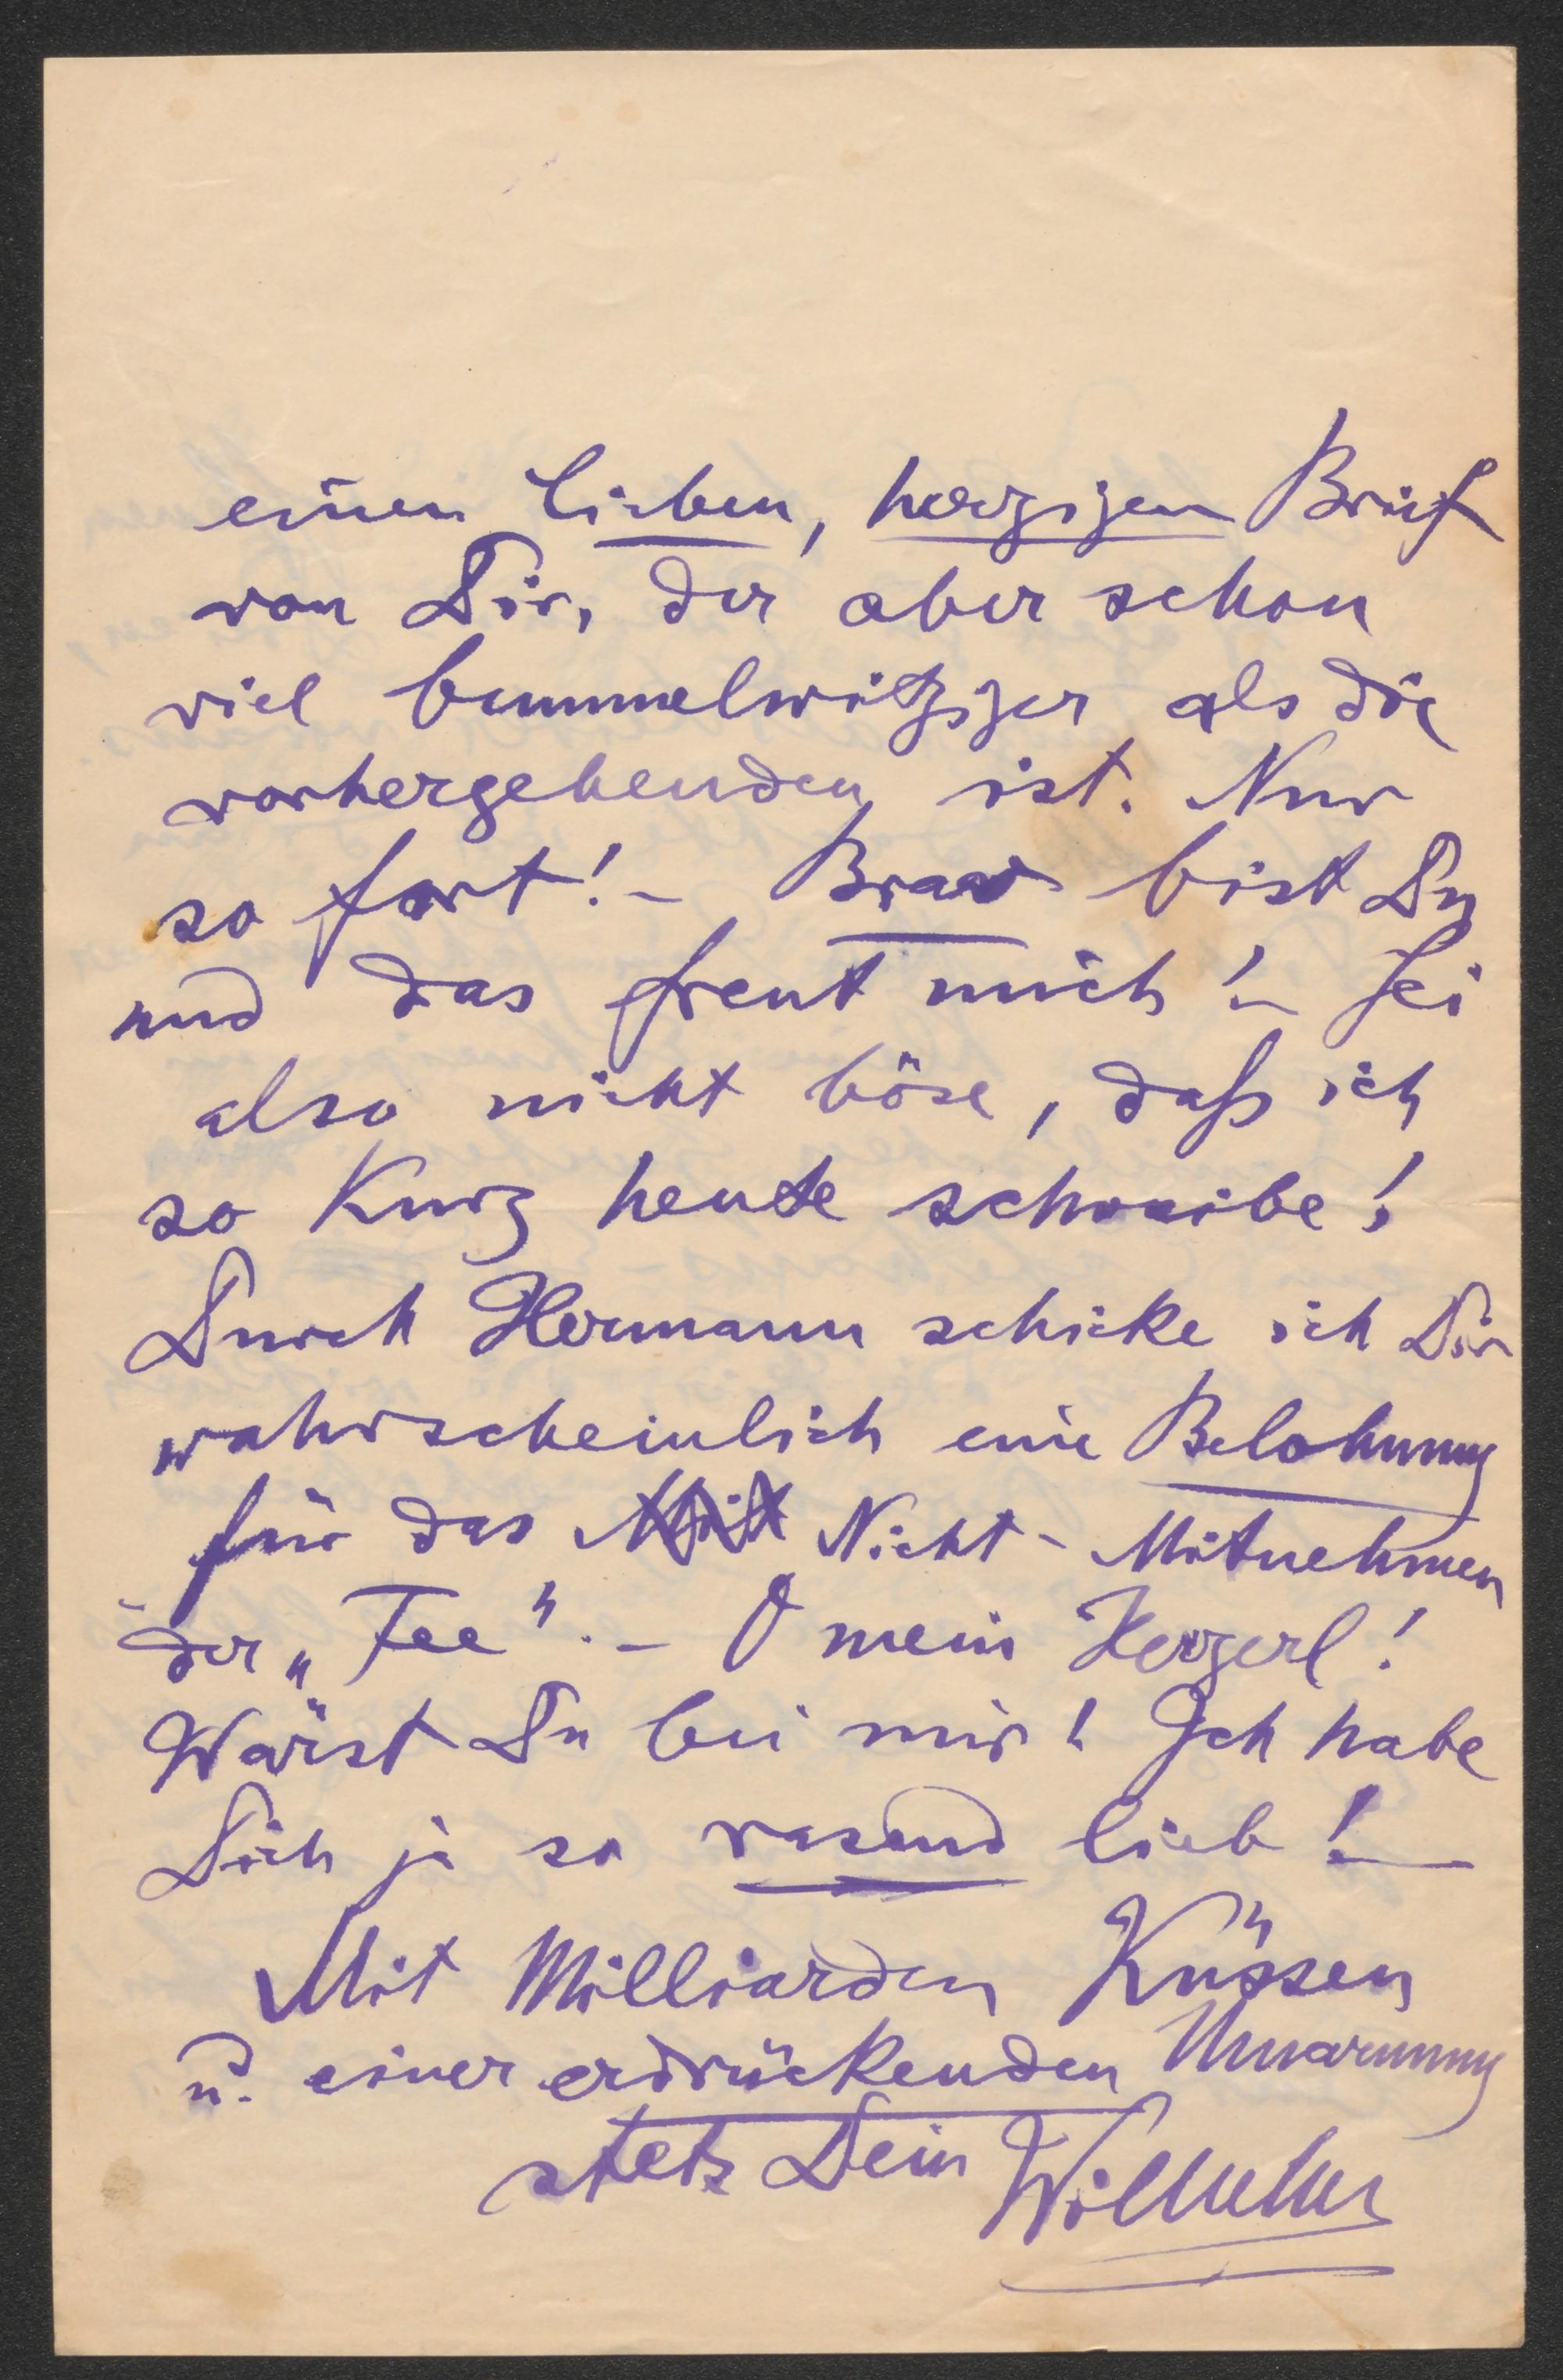 einen lieben, herzigen Brief
von Dir, der aber schon
viel bummelwitziger als die
vorhergehenden ist. Nur
so fort! - Brav bist Du
und das freut mich! - Sei
also nicht böse, daß ich
so kurz heute schreibe!
Durch Hermann schicke ich Dir
wahrscheinlich eine Belohnung
für das Mit Nicht - Mitnehmen
der „Fee". - O mein Herzerl!
Wärst Du bei mir! Ich habe
Dich ja so rasend lieb! -
Mit Milliarden Küssen
u. einer erdrückenden Umarmung
stets Dein Wilhelm